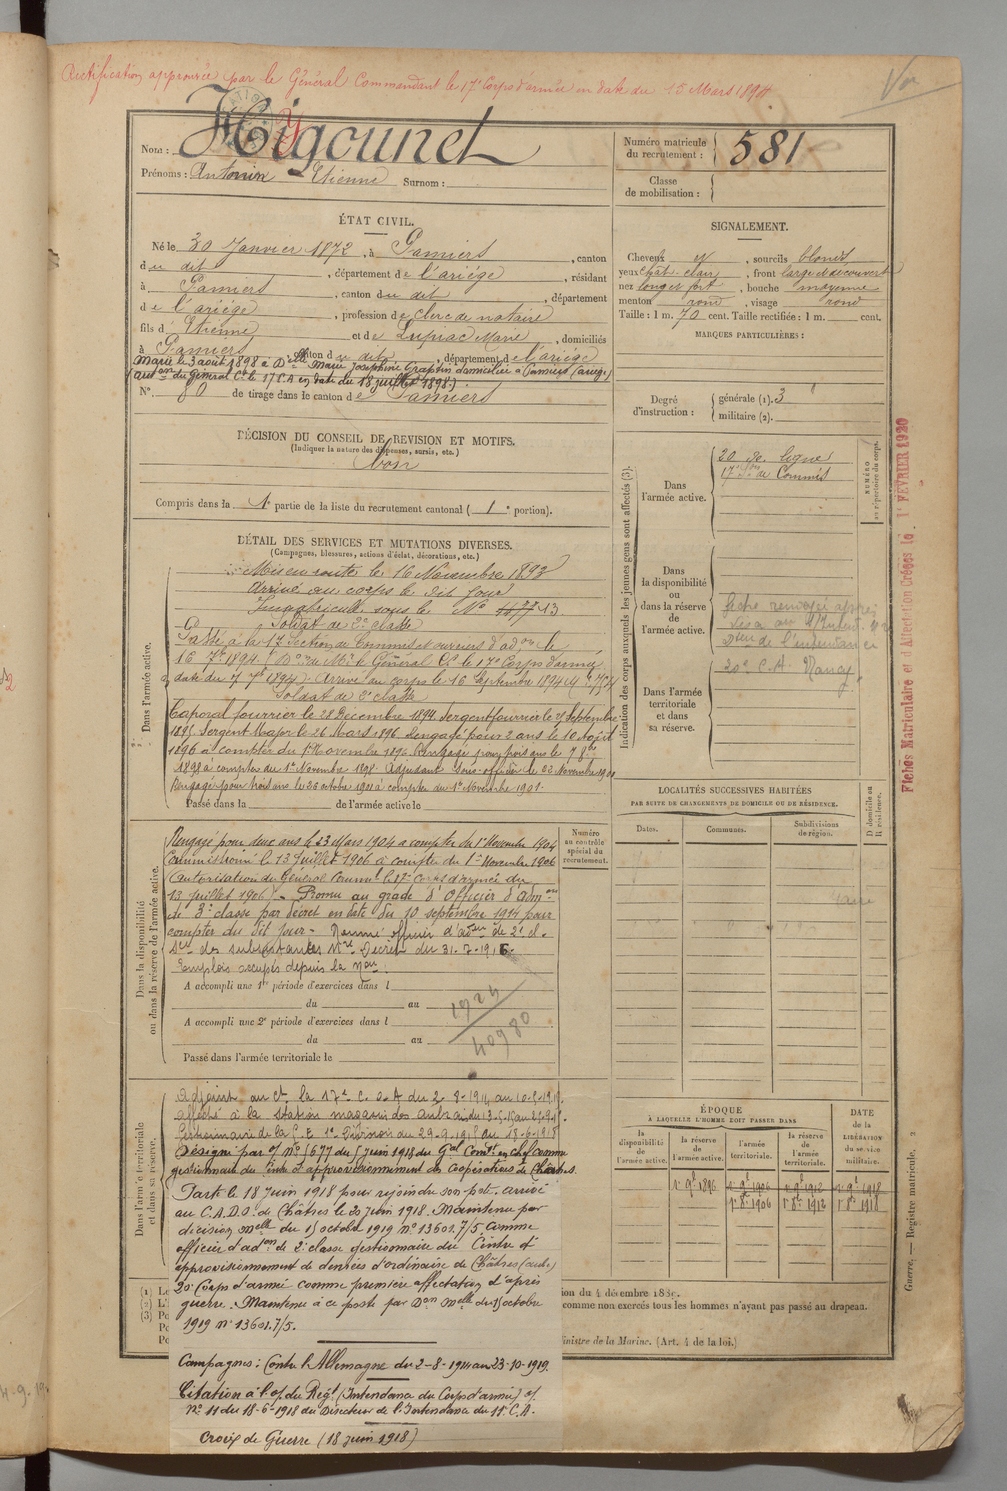 Rectification approuvée par le Général Commandant le 17e Corps d'armée en date du 15 Mars 1894
Vu
Nom : Higounet
Y
Prénoms : Antonin Etienne Surnom :
Numéro matricule du recrutement : 581
Classe de mobilisation :
ÉTAT CIVIL.
Né le 30 Janvier 1872, à Pamiers, canton
du dit, département de l'ariège, résidant
à Pamiers, canton du dit, département
de l'ariège, profession de clerc de notaire
fils d'Etienne et de Lupiac Marie, domiciliés
à Pamiers canton du dit, département de l'ariège
Marié le 3 août 1898 à Delle Marie Joséphine Traptin domiciliée à Pamiers (ariège)
(auton du Général Ct le 17 C.A en date du 18 juillet 1898.)
N° 80 de tirage dans le canton de Pamiers
SIGNALEMENT.
Cheveux et, sourcils blonds
yeux chat. clair, front large et découvert
nez long et fort, bouche moyenne
menton rond, visage rond
Taille : 1 m. 70 cent. Taille rectifiée : 1 m. cent.
MARQUES PARTICULIÈRES :
Degré d'instruction : générale (1). 3
militaire (2).
DÉCISION DU CONSEIL DE REVISION ET MOTIFS.
(Indiquer la nature des dispenses, sursis, etc.)
bon
Compris dans la 1e partie de la liste du recrutement cantonal (1e portion).
DÉTAIL DES SERVICES ET MUTATIONS DIVERSES.
(Campagnes, blessures, actions d'éclat, décorations, etc.)
Dans l'armée active.
Mis en route le 16 Novembre 1893
Arrivé au corps le dit jour
Immatriculé sous le N° 13
Soldat de 2e classe
Passé à la 17 Section de Commis et ouvriers d'adon le
16 7bre 1894. (Don de Mr le Général Ct le 17e Corps d'armée
date du 7 7bre 1894) Arrivé au corps le 16 Septembre 1894
Soldat de 2e classe
Caporal fourrier le 28 Décembre 1894 Sergent fourrier le 21 Septembre
1895 Sergent Major le 26 Mars 1896 Rengagé pour 2 ans le 10 Août
1896 à compter du 1er Novembre 1896 Rengagé pour trois ans le 7 8bre
1898 à compter du 1er Novembre 1898. Adjudant sous-officier le 22 Novembre 1900
Rengagé pour trois ans le 26 octobre 1901 à compter du 1er Novembre 1901.
Passé dans la de l'armée active le
Indication des corps auxquels les jeunes gens sont affectés (3).
Dans l'armée active.
20 de ligne
17e Son de Commis
Dans la disponibilité ou dans la réserve de l'armée active.
fiche renvoyée après
visa au
Don de l'intendance
Dans l'armée territoriale et dans sa réserve.
20e C.A. Nancy
NUMÉRO au répertoire du corps.
Fiches Matriculaire et d'Affectation Créées le 1er FÉVRIER 1920
Dans la disponibilité ou dans la réserve de l'armée active.
Rengagé pour deux ans le 23 Mars 1904 à compter du 1er Novembre 1904
Commissionné le 13 Juillet 1906 à compter du 1er Novembre 1906
(autorisation du Général Commt le 17e Corps d'armée du
13 juillet 1906) - Promu au grade d'Officier d'Admon
de 3e classe par décret en date du 10 septembre 1914 pour
compter du dit jour - Nommé officier d'adon de 2e cl.
Son des subsistances Mres Décret du 31-7-1916.
Emplois occupés depuis la Mon.
A accompli une 1re période d'exercices dans l
du au
A accompli une 2e période d'exercices dans l
du au
Passé dans l'armée territoriale le
1924
40980
Numéro au contrôle spécial du recrutement.
LOCALITÉS SUCCESSIVES HABITÉES
PAR SUITE DE CHANGEMENTS DE DOMICILE OU DE RÉSIDENCE.
Dates. Communes. Subdivisions de région. D domicile ou R résidence.
Dans l'armée territoriale et dans sa réserve.
Adjoint au Ct la 17e C.O.A du 2-8-1914 au 10-5-1915.
Affecté à la station magasin des Aubrais du 13-5-15 au 25-9-18.
Gestionnaire de la G. E 1e Division du 29-9-1915 au 18-6-1918
Désigné par of. N° 5677 du 5 juin 1918 du Gal Comt en chef comme
gestionnaire du Centre d'approvisionnement des Coopératives de Châtres.
Parti le 18 Juin 1918 pour rejoindre son poste. arrivé
au C.A.D.O. de Châtres le 20 juin 1918. Maintenu par
décision Melle du 15 octobre 1919 n° 13601.7/5 comme
officier d'adon de 2e classe gestionnaire du Centre d'
approvisionnement de denrées d'ordinaire de Châtres (aube)
20e Corps d'armée comme première affectation d'après
guerre. Maintenu à ce poste par Don Melle du 15 octobre
1919 n° 13601.7/5.
Campagnes : Contre l'Allemagne du 2-8-1914 au 23-10-1919.
Citation à l'o/ du Régt (Intendance du Corps d'armée) o/
N° 11 du 18-6-1918 du Directeur de l'Intendance du 11e C.A.
Croix de Guerre (18 juin 1918)
ÉPOQUE
À LAQUELLE L'HOMME DOIT PASSER DANS
la disponibilité de l'armée active. la réserve de l'armée active. l'armée territoriale. la réserve de l'armée territoriale.
DATE DE LA LIBÉRATION du service militaire.
1er 9bre 1896 1er 9bre 1906 1er 9bre 1912 1er 9bre 1918
1er 8bre 1906 1er 8bre 1912 1er 8bre 1918
Guerre. — Registre matricule, 2
(1) Le
(2) L'i
(3) Po
Po
Po
ion du 4 décembre 1889.
comme non exercés tous les hommes n'ayant pas passé au drapeau.
inistre de la Marine. (Art. 4 de la loi.)